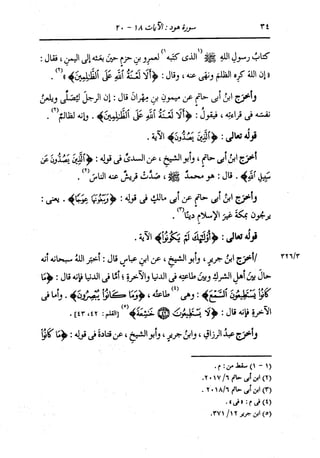 ٣٤ سورة هود : الآيات ١٨ - ٢٠
كتاب رسول الله ﷺ (١الذى كتبه١) لعمرو بن حزم حين بعثه إلى اليمن ، فقال :
« إن الله كره الظلم ونهى عنه ، وقال : ﴿أَلَا لَعْنَةُ اللَّهِ عَلَى الظَّالِمِينَ﴾ »(٢) .
وأخرج ابن أبى حاتم عن ميمون بن مهران قال : إن الرجل ليُصلِّى ويلعن
نفسه فى قراءته ، فيقول : ﴿أَلَا لَعْنَةُ اللَّهِ عَلَى الظَّالِمِينَ﴾ . وإنه لظالم(٢) .
قولُه تعالى : ﴿الَّذِينَ يَصُدُّونَ﴾ الآية .
أخرج ابن أبى حاتم ، وأبو الشيخ ، عن السدىِّ فى قوله : ﴿الَّذِينَ يَصُدُّونَ عَن
سَبِيلِ اللَّهِ﴾ . قال : هو محمدٌ ﷺ ، صدَّت قريشٌ عنه الناسَ(٢) .
وأخرج ابن أبى حاتم عن أبى مالكٍ فى قوله : ﴿وَيَبْغُونَهَا عِوَجًا﴾ . يعنى :
يرجون بمكةَ غيرَ الإسلام دينًا(٣) .
قولُه تعالى : ﴿أُولَئِكَ لَمْ يَكُونُوا﴾ الآية .
٣٢٦/٣ /أخرج ابنُ جريرٍ ، وأبو الشيخ ، عن ابنِ عباسٍ قال : أخبَر اللهُ سبحانه أنه
حال بينَ أهلِ الشركِ وبينَ طاعتِه فى الدنيا والآخرةِ ؛ أمَّا فى الدنيا فإنه قال : ﴿مَا
كَانُوا يَسْتَطِيعُونَ السَّمْعَ﴾ : وهى(٤) طاعتُه ، ﴿وَمَا كَانُوا يُبْصِرُونَ﴾ . وأما فى
الآخرةِ فإنه قال : ﴿فَلَا يَسْتَطِيعُونَ ۝ خَاشِعَةً﴾(٥) [القلم : ٤٢، ٤٣] .
وأخرج عبدُ الرزاق ، وابنُ جريرٍ ، وأبو الشيخ ، عن قتادةَ فى قوله : ﴿مَا كَانُوا
(١ - ١) سقط من : م .
(٢) ابن أبى حاتم ٢٠١٧/٦ .
(٣) ابن أبى حاتم ٢٠١٨/٦ .
(٤) فى م : « فى » .
(٥) ابن جرير ٣٧١/١٢ .